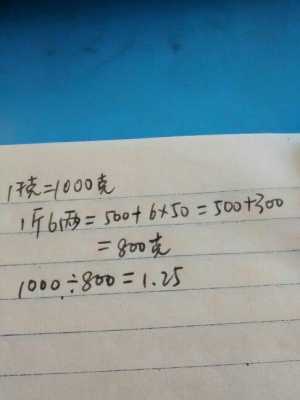 1千克=1000克
1斤6两=500+6×50=500+300
=800克
1000÷800=1.25